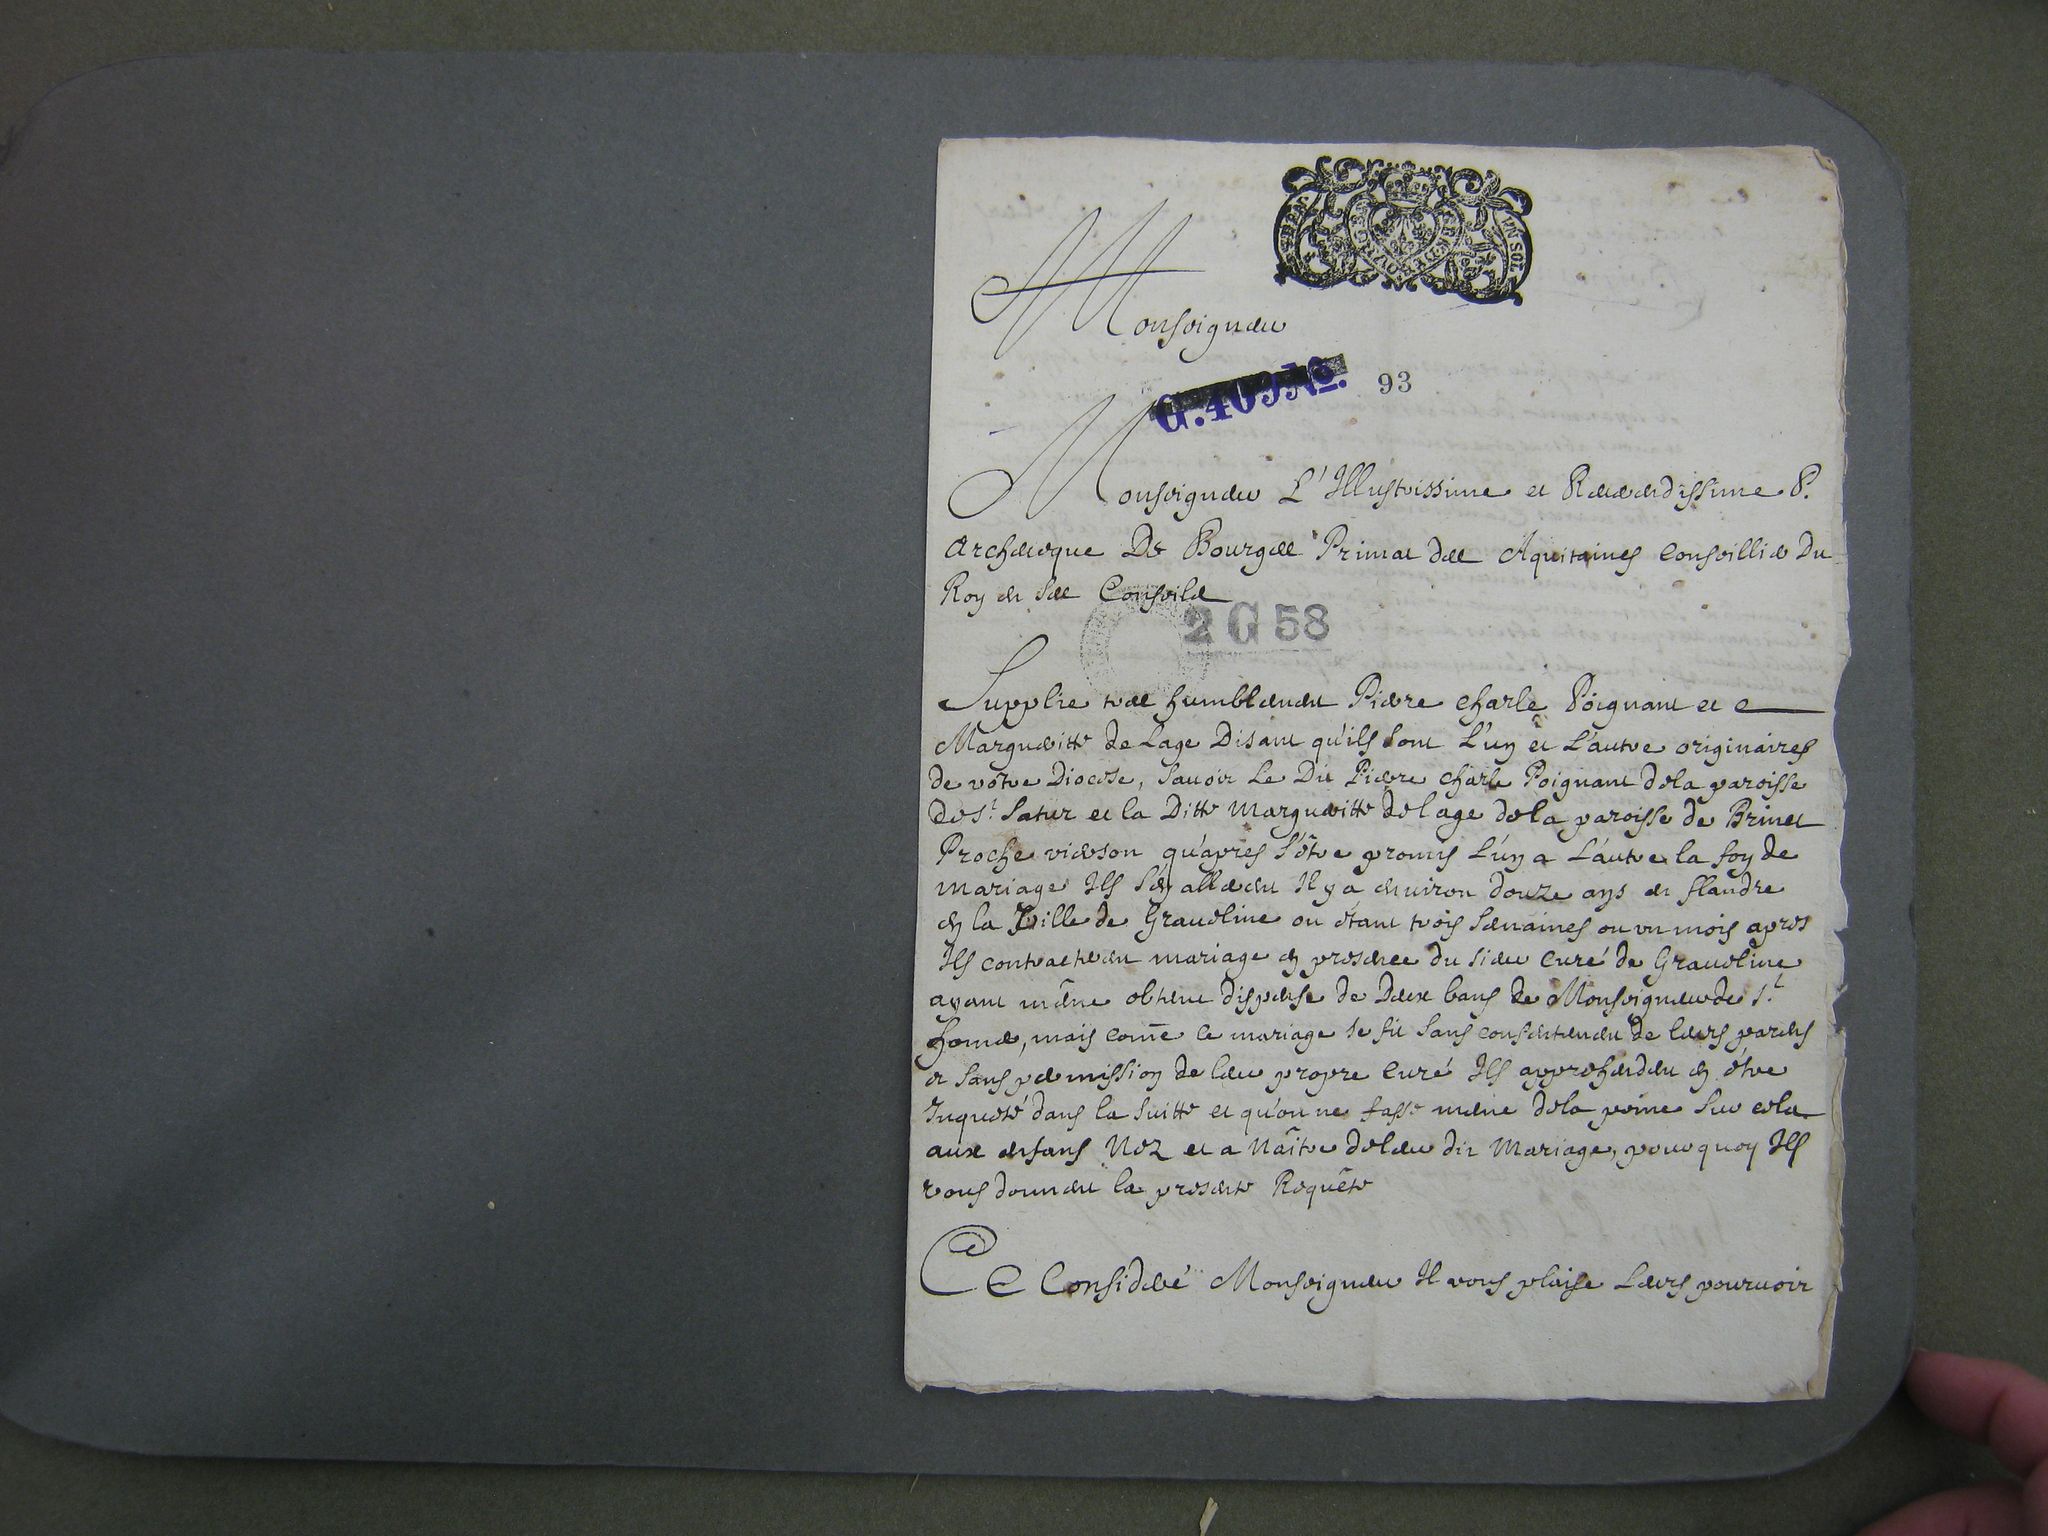 UN SOL
Monseigneur
G. 409 No.
93
Monseigneur L'Illustrissime et Reverendissime P.
Archeveque De Bourges Primat des Aquitaines Conseillier Du
Roy en ses Conseils
2 G 58
Supplie tres humblement Pierre Charle Poignant et
Margueritte de Lage Disant qu'ils sont L'un et L'autre originaires
de vôtre Diocese, sauoir Le Dit Pierre Charle Poignant dela paroisse
de St. Satur et la Ditte Margueritte de Lage dela paroisse de Brinet
Proche vierson qu'apres s'être promis L'un a L'autre la foy de
mariage Ils s'en allerent Il y a enuiron douze ans en flandre
en la Ville de Graueline ou êtant trois semaines ou un mois apres
Ils contracterent mariage en presence du sieur Curé de Graueline
ayant même obtenu dispense de Deux bans de Monseigneur de St.
homer, mais comē ce mariage se fit sans consentement de leurs parens
et sans permission de leur propre Curé Ils apprehendent en être
Inqueté dans la suitte et qu'on ne fasse même dela peine sur cela
aux enfans Nez et a Naître de leur dit Mariage, pourquoy Ils
vous donnent la presente Requête
Ce Consideré Monseigneur Il vous plaise Leurs pouruoir